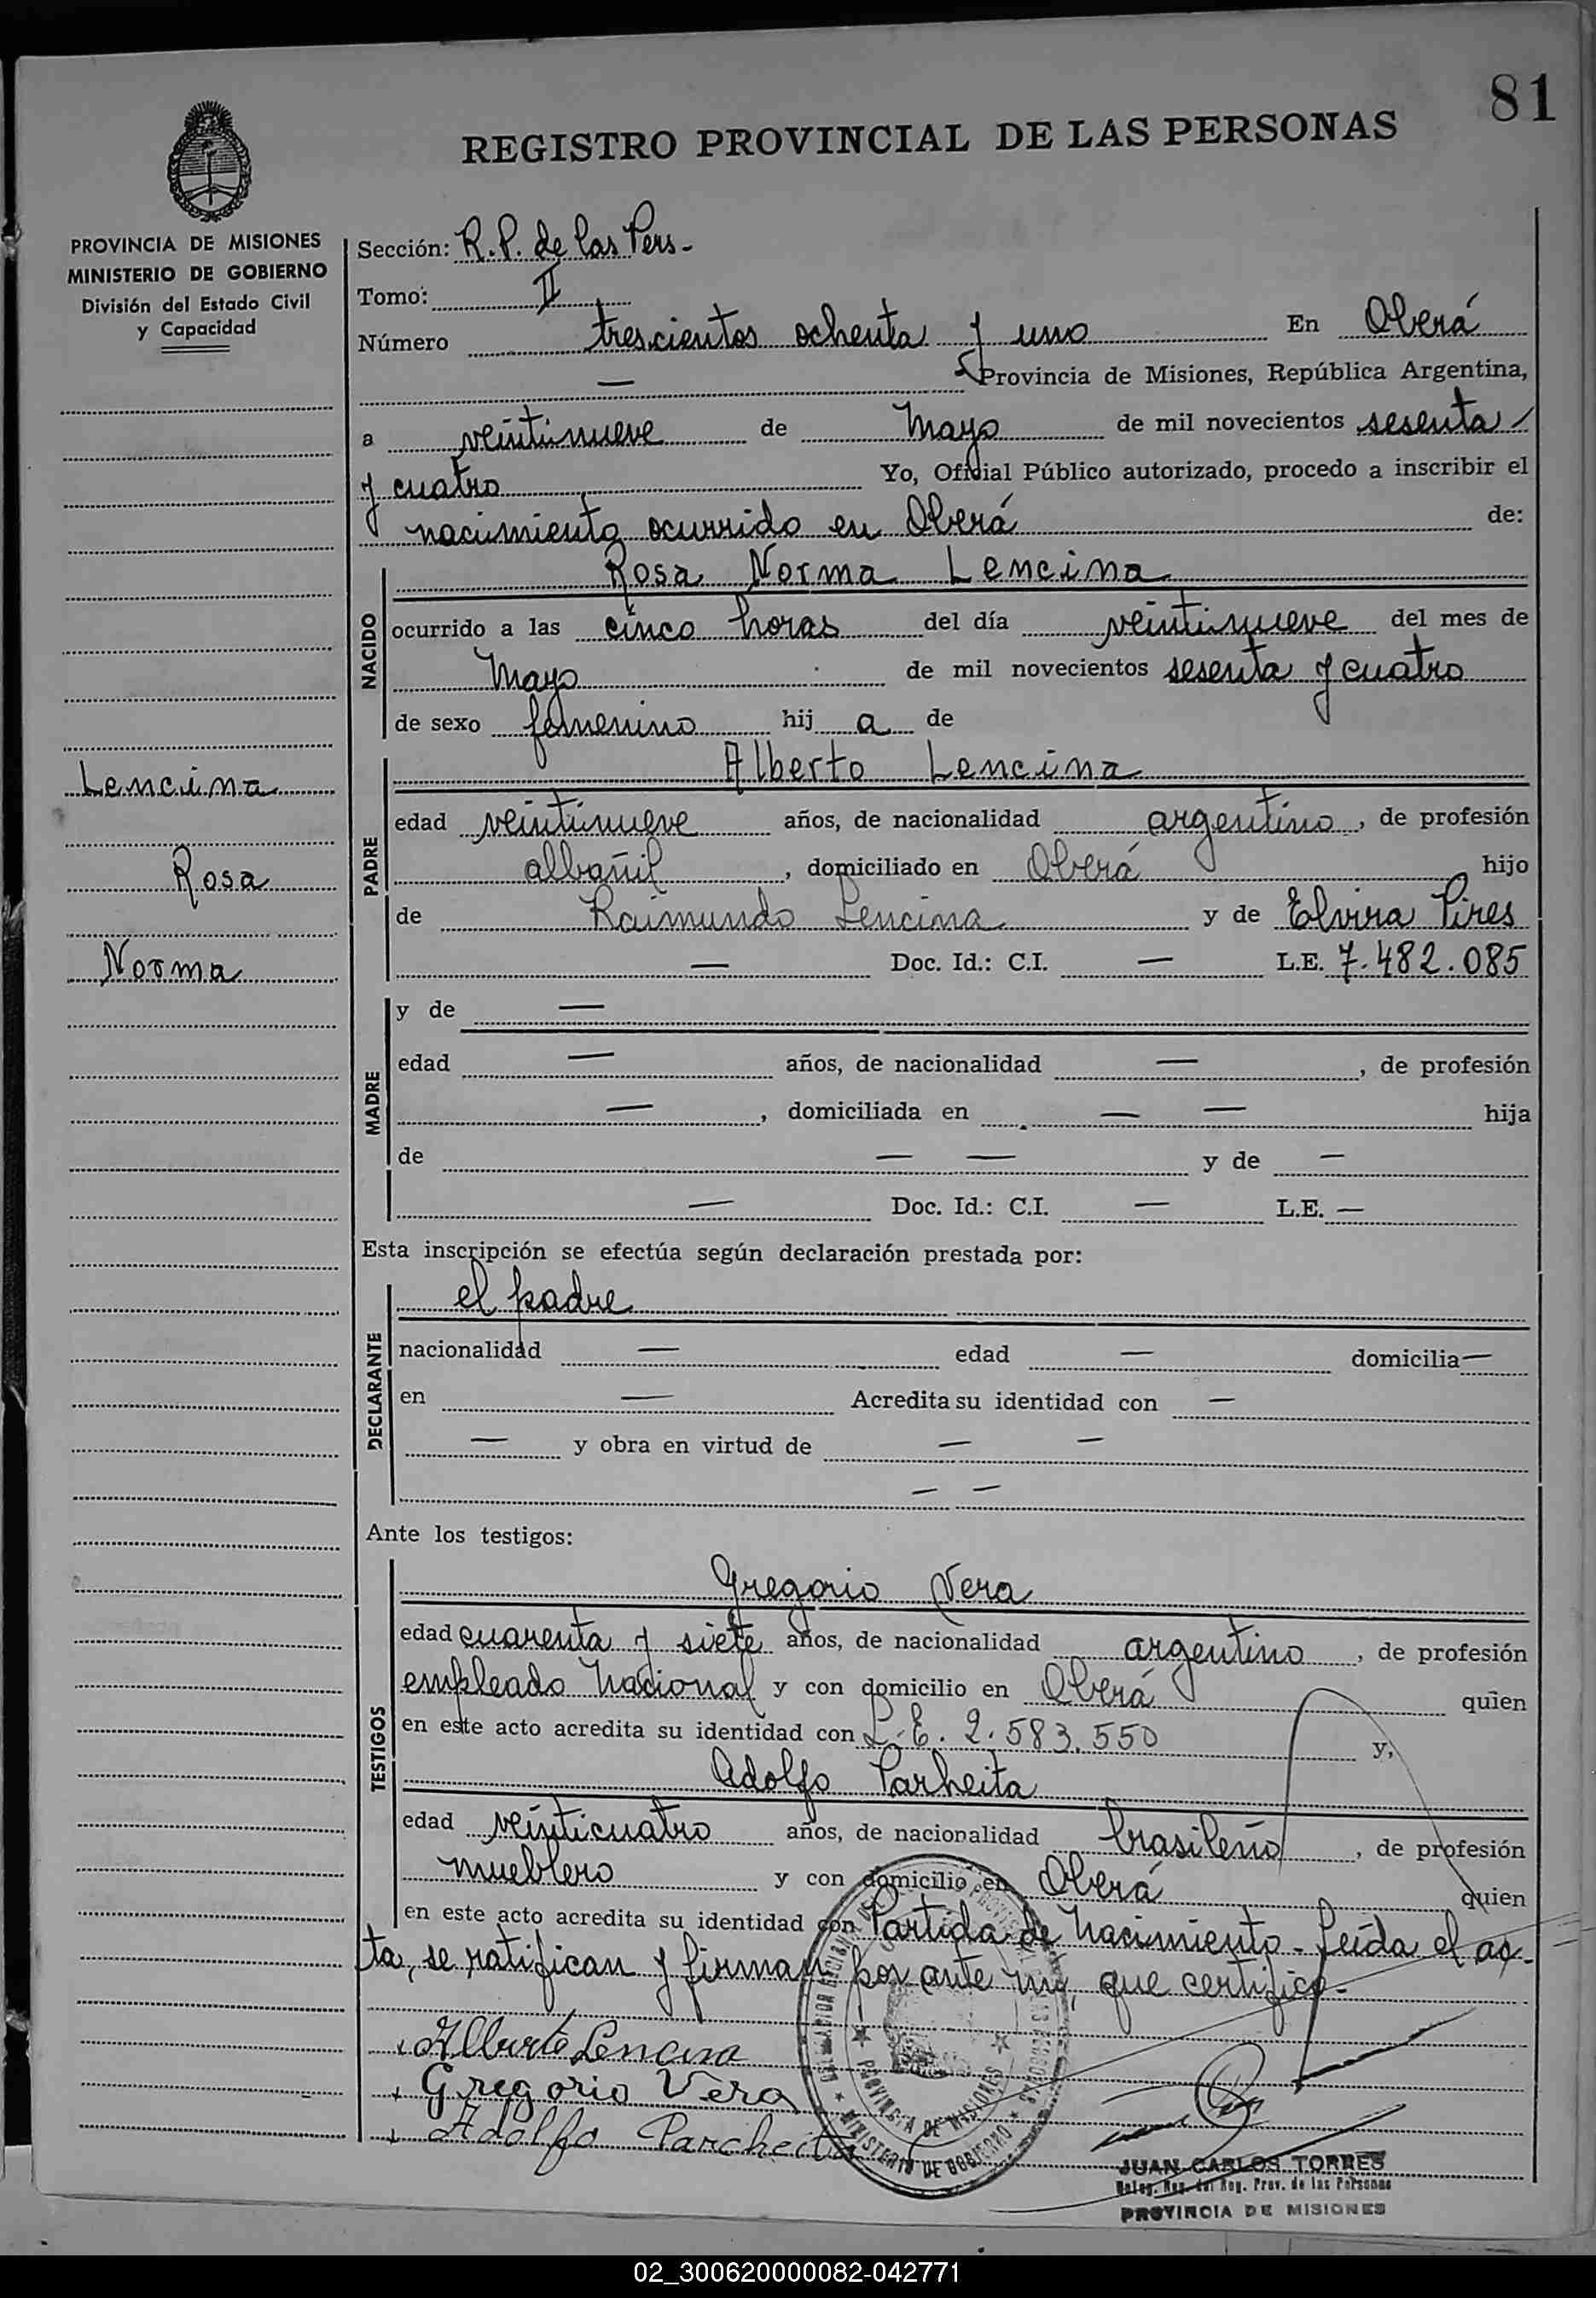 81
REGISTRO PROVINCIAL DE LAS PERSONAS
PROVINCIA DE MISIONES
MINISTERIO DE GOBIERNO
División del Estado Civil
y Capacidad
Lencina
Rosa
Norma
Sección: R.P. de las Pers-
Tomo: II
Número trescientos ochenta y uno En Oberá
— Provincia de Misiones, República Argentina,
a veintinueve de Mayo de mil novecientos sesenta
y cuatro Yo, Oficial Público autorizado, procedo a inscribir el
nacimiento ocurrido en Oberá de:
NACIDO
Rosa Norma Lencina
ocurrido a las cinco horas del día veintinueve del mes de
Mayo de mil novecientos sesenta y cuatro
de sexo femenino hij a de
PADRE
Alberto Lencina
edad veintinueve años, de nacionalidad argentino, de profesión
albañil, domiciliado en Oberá hijo
de Raimundo Lencina y de Elvira Pires
— Doc. Id.: C.I. — L.E. 7.482.085
MADRE
y de —
edad — años, de nacionalidad —, de profesión
—, domiciliada en — — hija
de — — y de —
— Doc. Id.: C.I. — L.E. —
Esta inscripción se efectúa según declaración prestada por:
DECLARANTE
el padre
nacionalidad — edad — domicilia —
en — Acredita su identidad con —
— y obra en virtud de — —
— —
Ante los testigos:
TESTIGOS
Gregorio Vera
edad cuarenta y siete años, de nacionalidad argentino, de profesión
empleado Nacional y con domicilio en Oberá quien
en este acto acredita su identidad con L.E. 2.583.550 y,
Adolfo Parheita
edad veinticuatro años, de nacionalidad brasileño, de profesión
mueblero y con domicilio en Oberá quien
en este acto acredita su identidad con Partida de Nacimiento - Leída el ac-
ta, se ratifican y firman por ante mi, que certifico-
Alberto Lencina
Gregorio Vera
Adolfo Parcheita
PROVINCIA DE MISIONES
MINISTERIO DE GOBIERNO
JUAN CARLOS TORRES
Reg. Prov. de las Personas
PROVINCIA DE MISIONES
02_300620000082-042771